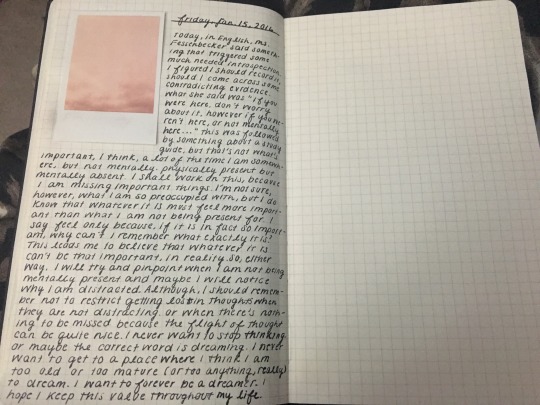 friday, jan 15, 2016
Today, in English, Ms.
Feschbecker said someth-
ing that triggered some
much needed introspection.
I figured I should record it,
should I come across some
contradicting evidence.
What she said was "if you
were here, don't worry
about it, however if you we-
ren't here, or not mentally
here..." This was followed
by something about a study
guide, but that's not what's
important, I think, a lot of the time I am somewh-
ere. but not mentally. physically present but
mentally absent. I shall work on this, because
I am missing important things. I'm not sure,
however, what I am so preoccupied with, but I do
know that whatever it is must feel more import-
ant than what I am not being present for. I
say feel only because, if it is in fact so import-
ant, why can't I remember what exactly it is?
This leads me to believe that whatever it is
can't be that important, in reality. So, either
way. I will try and pinpoint when I am not being
mentally present and maybe I will notice
why I am distracted. Although, I should remem-
ber not to restrict getting lost in thoughts when
they are not distracting. or when there's noth-
ing to be missed because the flight of thought
can be quite nice. I never want to stop thinking.
or maybe the correct word is dreaming. I never
want to get to a place where I think I am
too old or too mature (or too anything, really)
to dream. I want to forever be a dreamer. I
hope I keep this value throughout my life.